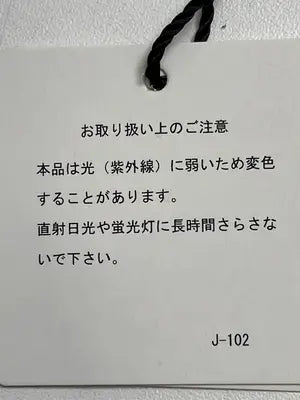 お取り扱い上のご注意
本品は光（紫外線）に弱いため変色
することがあります。
直射日光や蛍光灯に長時間さらさな
いで下さい。
J-102